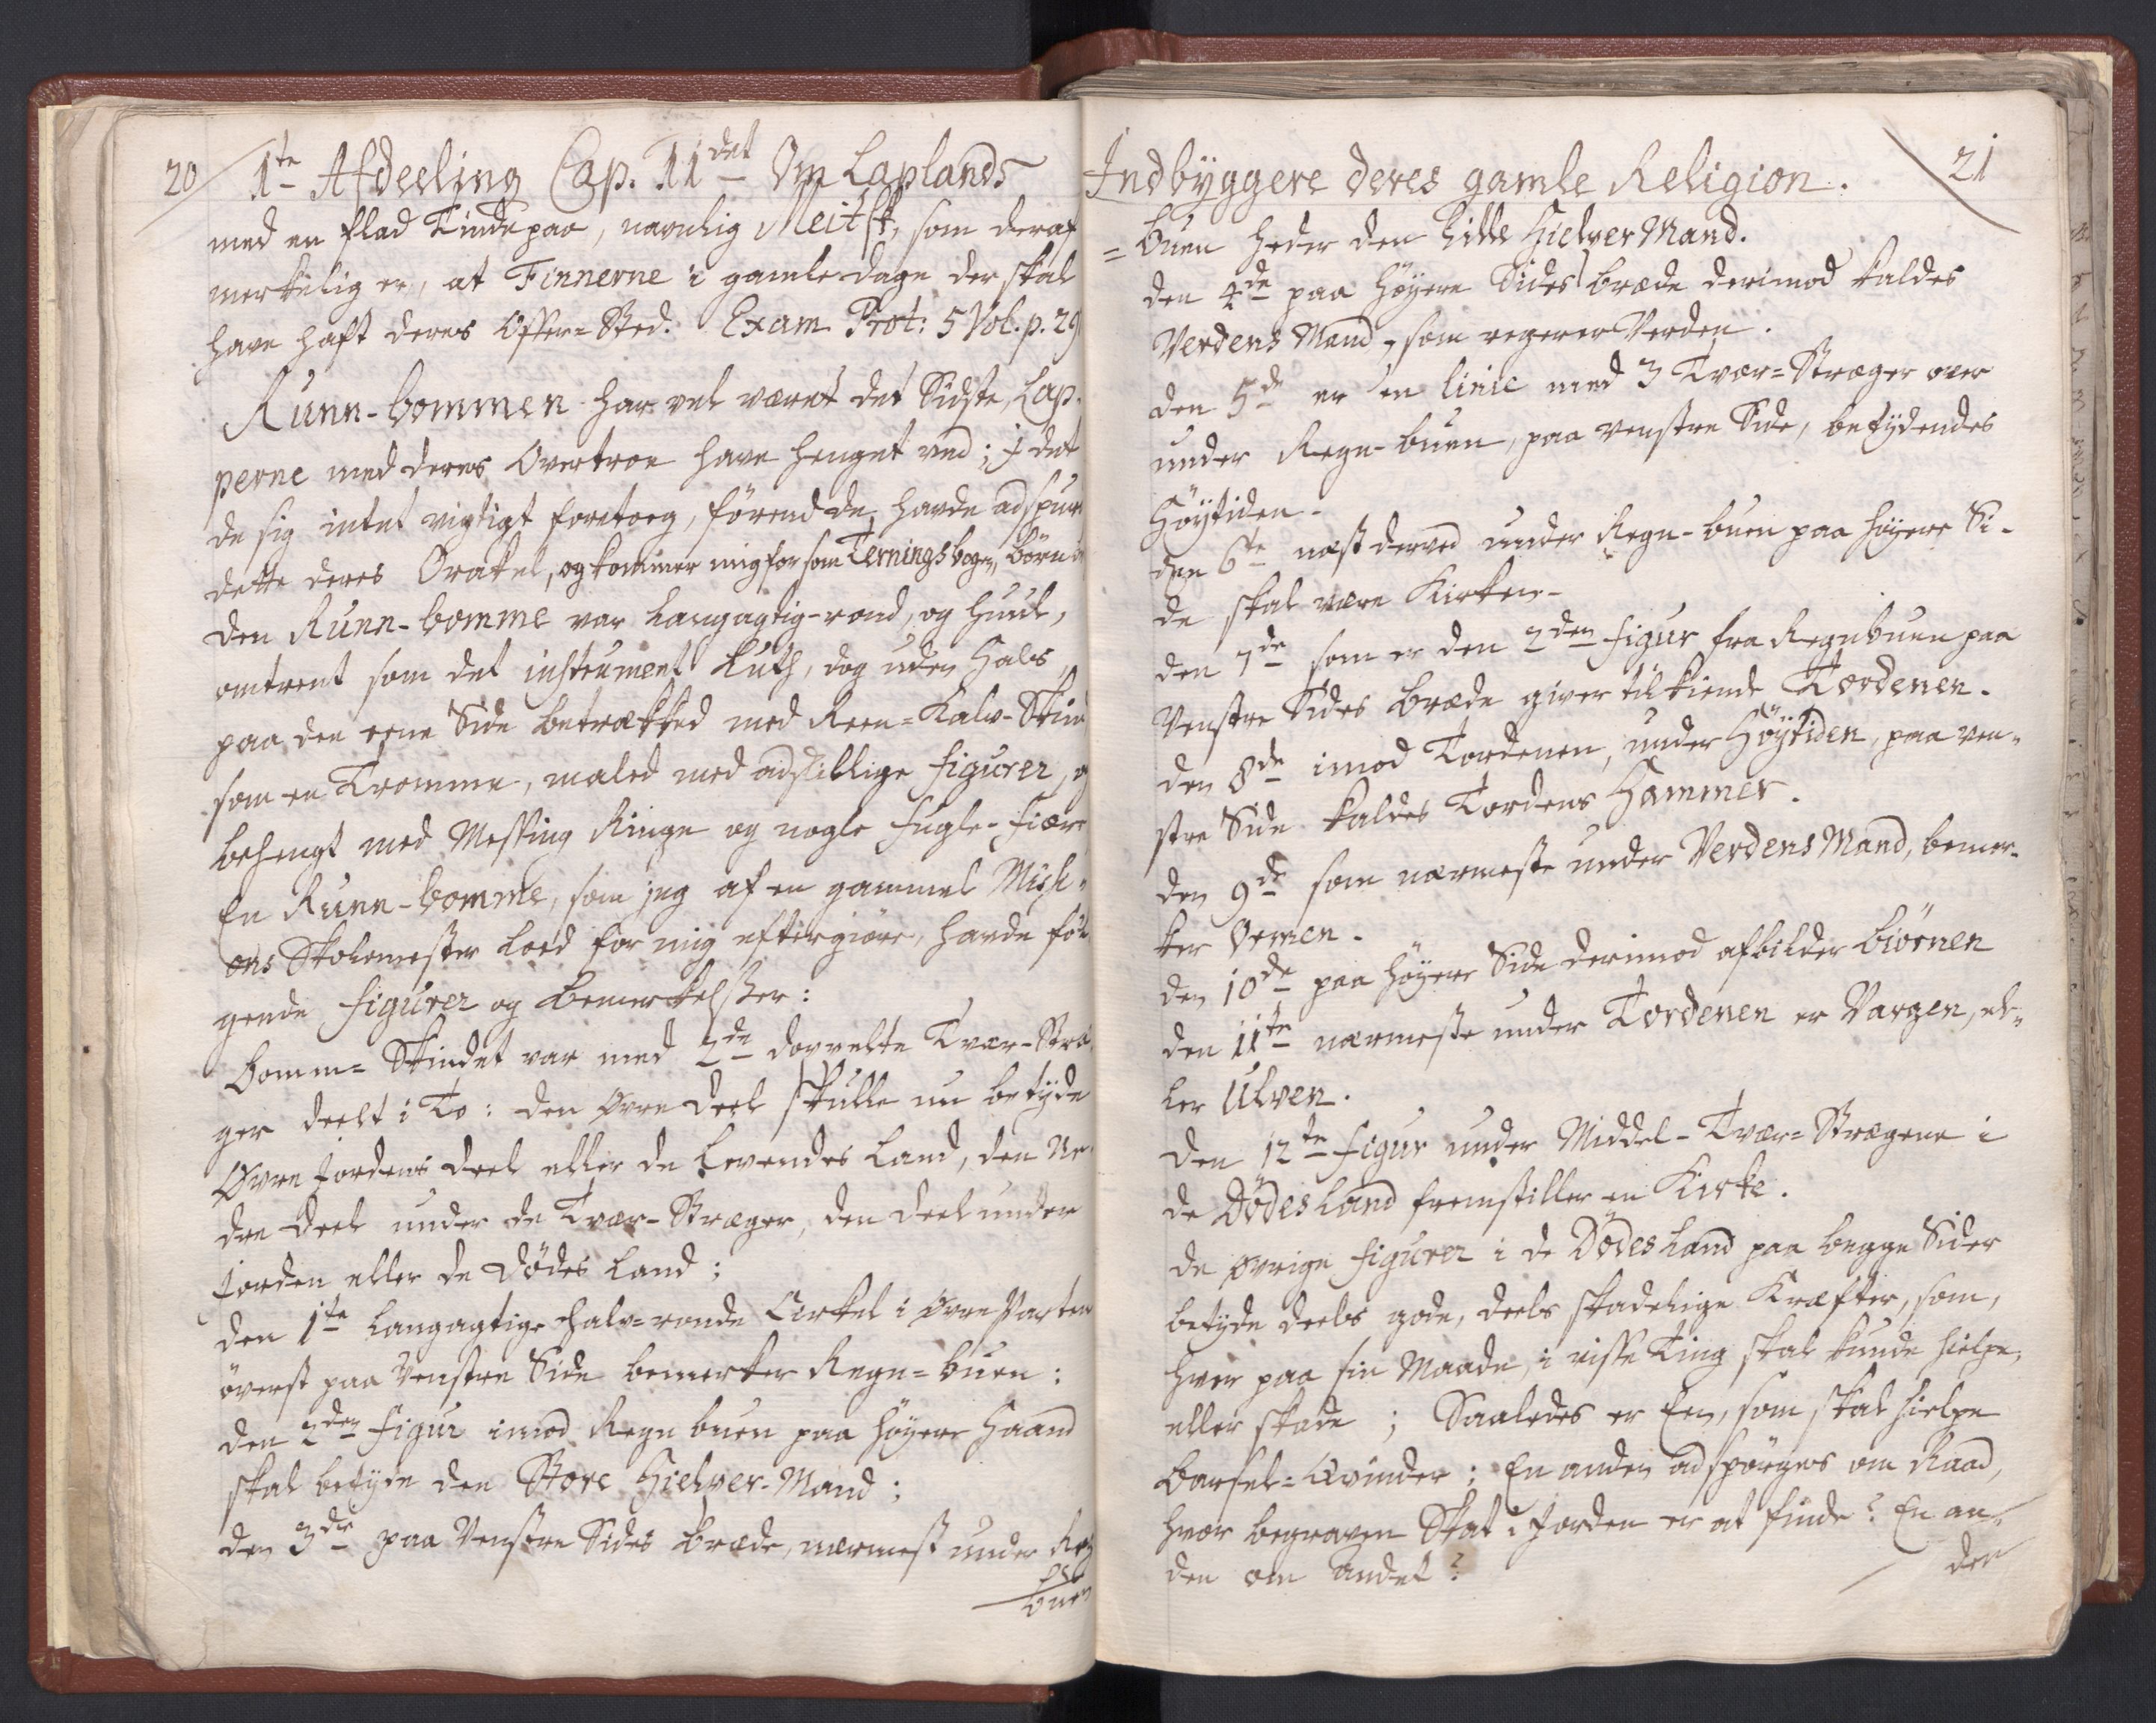 20
1te Afdeeling Cap. 11det Om Laplands
med en flad Tinde paa, navnlig Meitsk, som deraf
merkelig er, at Finnerne i gamle dage der skal
have haft deres Offer=Sted. Exam. Prot: 5 Vol. p. 29
Runn-bommen har vel været det Sidste, Lap-
perne med deres Overtroe have henget ved; i det
de sig intet vigtigt foretoeg, førend de havde adspurt
dette deres Orakel, og kommer mig for som Ternings bogen, börn
Den Runn-bomme var Langagtig-rond, og huul,
omtrent som det instrument Luth, dog uden Hals,
paa den eene Side betrækked med Reen=Kalv-Skind
som en Tromme, maled med adskillige figurer, og
behengt med Messing Ringe og nogle fugle-fiære
En Runn-bomme, som jeg af en gammel Missi-
ons Skolemester loed for mig eftergiøre, havde føl-
gende figurer og bemerkelsser:
Bomm=Skindet var med 2de dovvelte Tvær-Stræ-
ger deelt i To: den øvre deel skulle nu betyde
Øvre Jordens deel eller de Levendes Land, den Ne-
dre deel under de Tvær-Stræger, den deel under
Jorden eller de Dødes Land;
den 1te Langagtige halv=ronde Cirkel i øvre Parten
överst paa Venstre Side bemerker Regn=buen:
den 2den figur imod Regn buen paa høyere Haand
skal betyde den Store Hielper-Mand;
den 3de paa Venstre Sides bræde, nærmest under Reg
buen
Indbyggere deres gamle Religion.
21
=buen heder den Lille HielperMand.
den 4de paa høyere Sides bræde derimod kaldes
Verdens Mand, som regerer Verden.
den 5de er en linie med 3 Tvær=Stræger over
under Regn-buen, paa venstre Side, betydendes
Høytiden.
den 6te næst derved under Regn-buen paa høyere Si-
de skal være Kirken.
den 7de som er den 2den figur fra Regnbuen paa
Venstre Sides bræde giver tilkiende Tordenen.
den 8de imod Tordenen, under Høytiden, paa ven-
stre Side kaldes Tordens Hammer.
den 9de som nærmeste under Verdens Mand, bemer-
ker Ormen.
den 10de paa høyere Side derimod afbilder biørnen
den 11te nærmeste under Tordenen er Vargen, el-
ler Ulven.
Den 12te figur under Middel-Tvær=Strægene i
de Dødes Land fremstiller en Kirke.
de øvrige figurer i de Dødes Land paa begge Sider
betyde deels gode, deels skadelige Kræfter, som,
hver paa sin Maade, i visse Ting skal kunde hielpe,
eller skade; Saaledes er En, som skal hielpe
Barsel=Qvinder; En anden adspørges om Raad,
hvor begraven Skat i Jorden er at finde? En an-
den om andet?
den